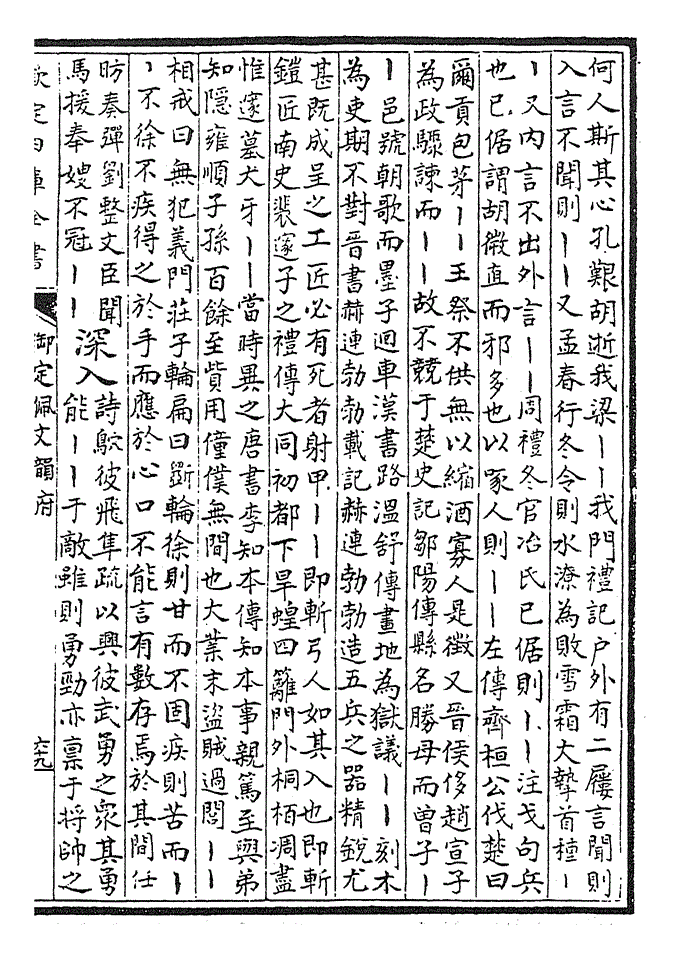 何人斯其心孔艱胡逝我梁丨丨我門禮記户外有二屨言聞則
入言不聞則丨丨又孟春行冬令則水潦為敗雪霜大摯首種丨
丨又内言不出外言丨丨周禮冬官冶氏已倨則丨丨注戈句兵
也已倨謂胡微直而邪多也以啄人則丨丨左傳齊桓公伐楚曰
爾貢包茅丨丨王祭不供無以縮酒寡人是徵又晉侯侈趙宣子
為政驟諫而丨丨故不競于楚史記鄒陽傳縣名勝母而曾子丨
丨邑號朝歌而墨子迴車漢書路溫舒傳畫地為獄議丨丨刻木
為吏期不對晉書赫連勃勃載記赫連勃勃造五兵之器精銳尤
甚既成呈之工匠必有死者射甲丨丨即斬弓人如其入也即斬
鎧匠南史裴邃子之禮傳大同初都下旱蝗四籬門外桐栢凋盡
惟邃墓犬牙丨丨當時異之唐書李知本傳知本事親篤至與弟
知隱雍順子孫百餘至貲用僮僕無間也大業末盜賊過閭丨丨
相戒曰無犯義門莊子輪扁曰斲輪徐則甘而不固疾則苦而丨
丨不徐不疾得之於手而應於心口不能言有數存焉於其間任
昉奏彈劉整文臣聞
馬援奉嫂不冠丨丨
深入
詩鴥彼飛隼疏以興彼武勇之衆其勇
能丨丨于敵雖則勇勁亦禀于將帥之
欽定四庫全書
御定佩文韻府